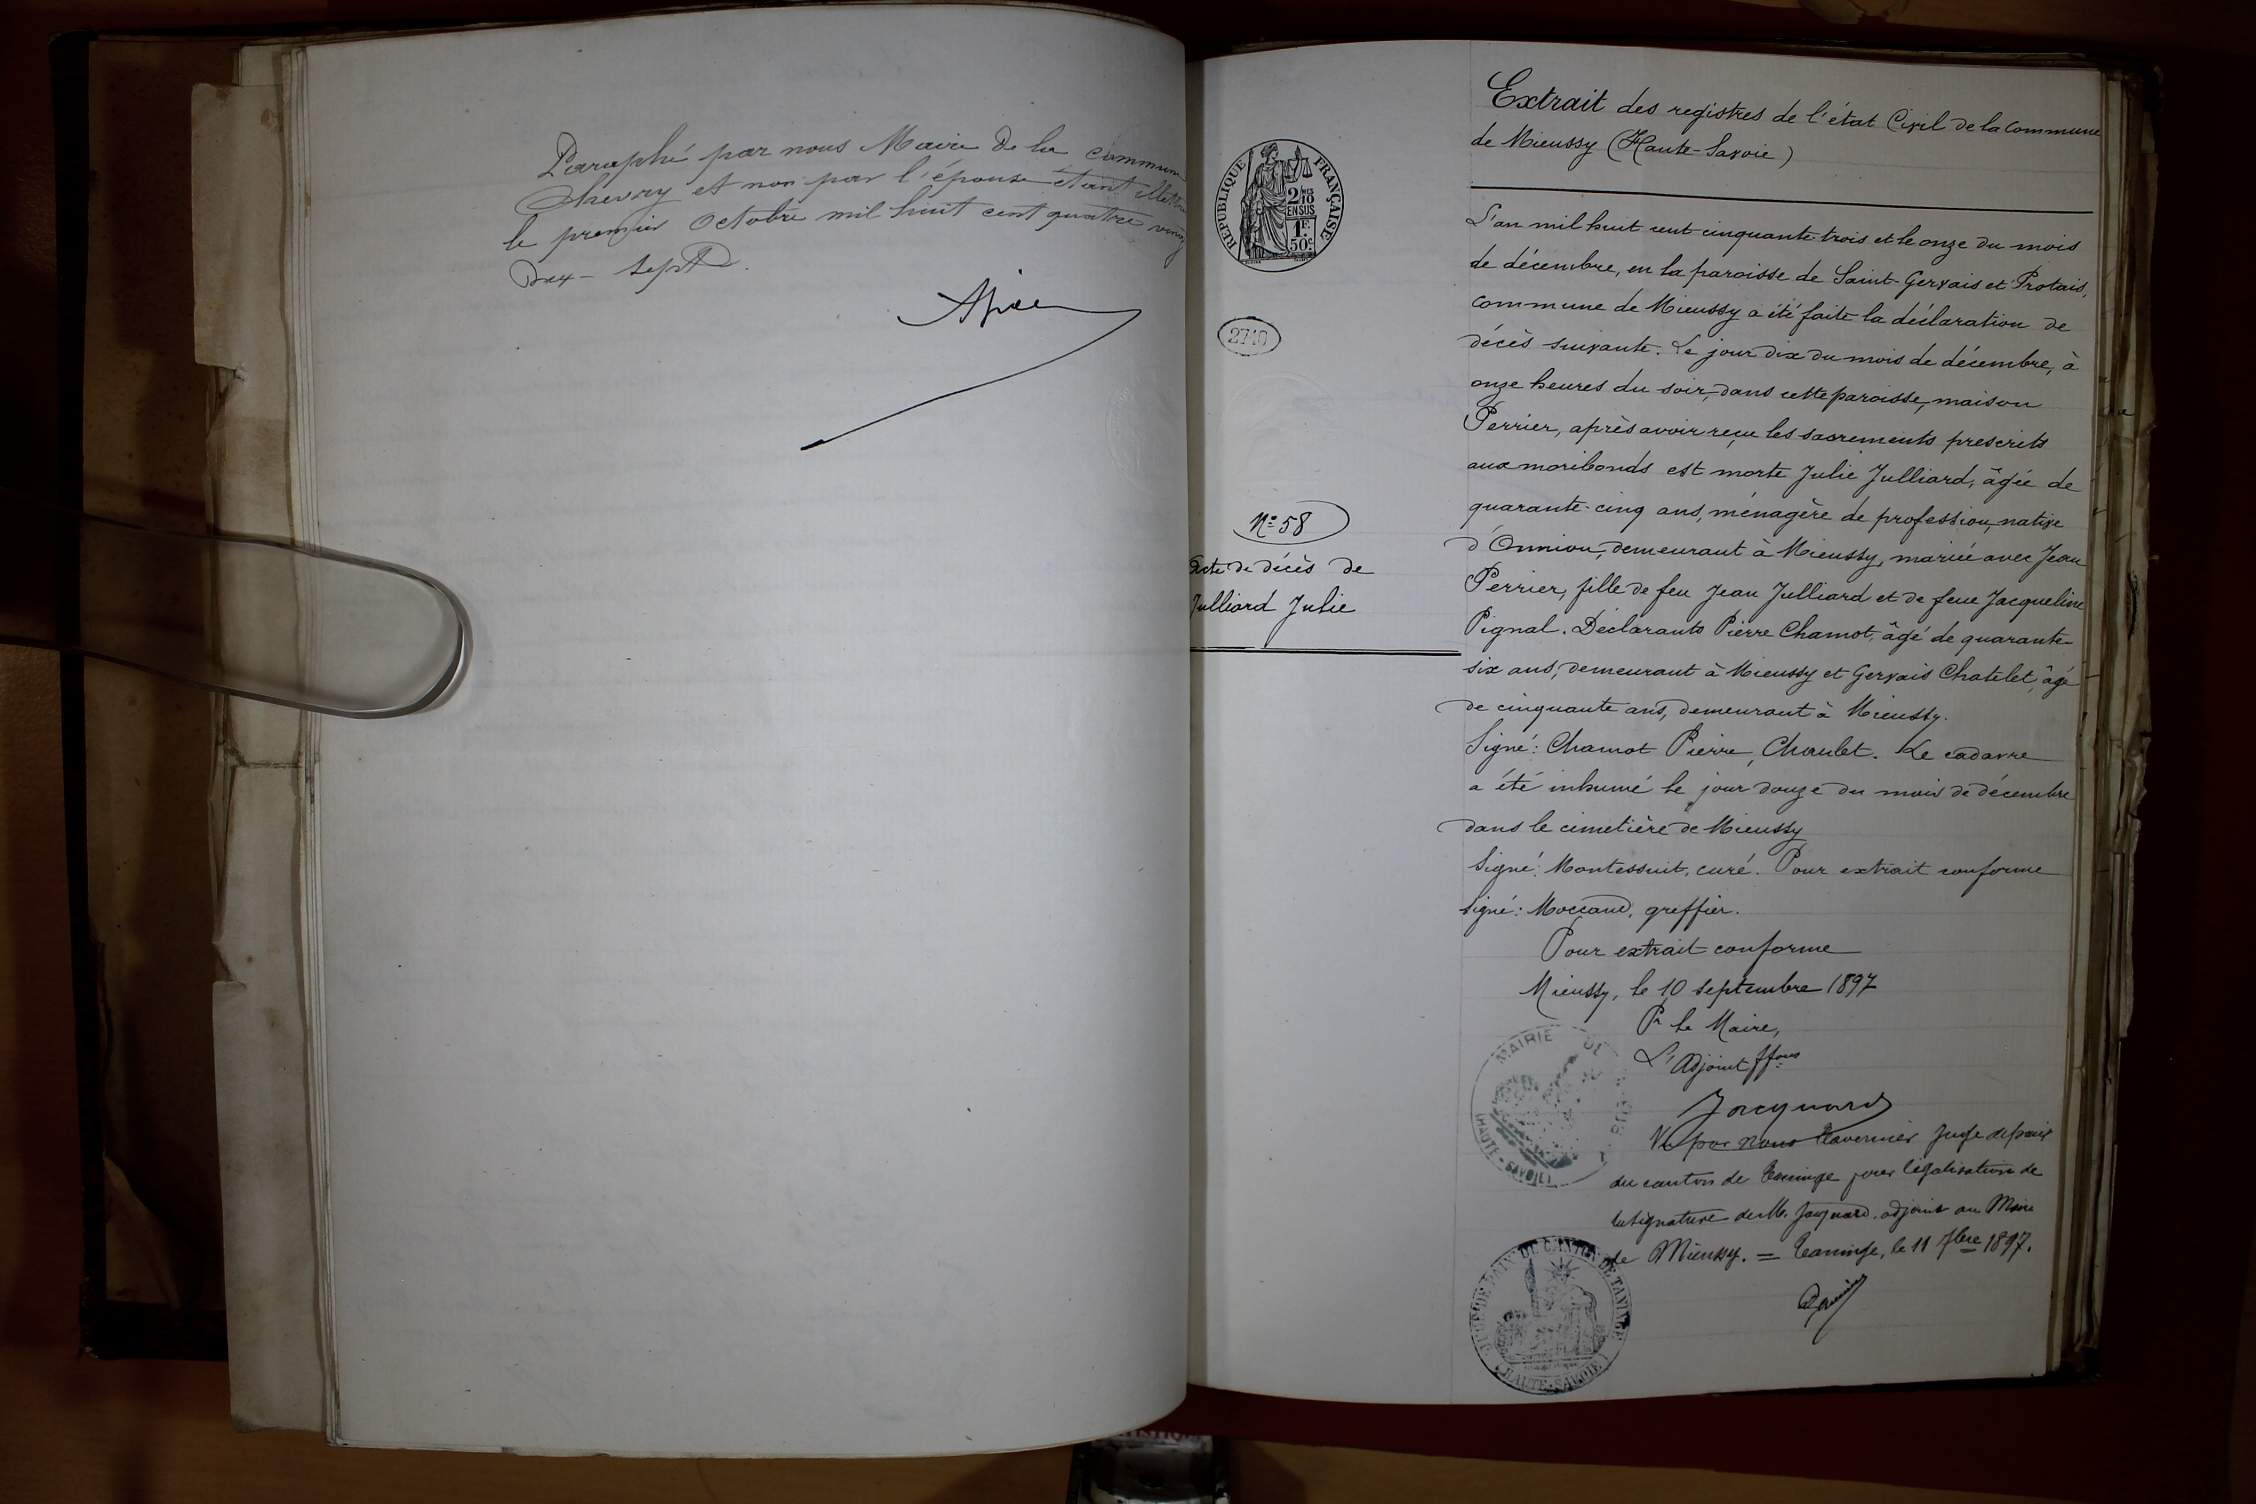 Paraphé par nous Maire De la commune
Chevry et non par l'épouse étant illettrée
le premier Octobre mil huit cent quatre vingt
Dix-sept.
RÉPUBLIQUE FRANÇAISE
2/10 EN SUS
1F. 50c.
2740
N° 58
Acte de décès de
Julliard Julie
Extrait des registres de l'état Civil de la commune
de Mieussy (Haute-Savoie)
L'an mil huit cent cinquante trois et le onze du mois
de décembre, en la paroisse de Saint-Gervais et Protais,
commune de Mieussy a été faite la déclaration de
décès suivante. Le jour dix du mois de décembre, à
onze heures du soir, dans cette paroisse, maison
Perrier, après avoir reçu les sacrements prescrits
aux moribonds est morte Julie Julliard, âgée de
quarante-cinq ans, ménagère de profession, native
d'Onnion, demeurant à Mieussy, mariée avec Jean
Perrier, fille de feu Jean Julliard et de feue Jacqueline
Pignal. Déclarants Pierre Chamot, âgé de quarante-
six ans, demeurant à Mieussy et Gervais Chatelet, âgé
de cinquante ans, demeurant à Mieussy.
Signé: Chamot Pierre, Choulet. Le cadavre
a été inhumé le jour douze du mois de décembre
dans le cimetière de Mieussy
Signé: Montessuit, curé. Pour extrait conforme
signé: Moccand, greffier.
Pour extrait conforme
Mieussy, le 10 septembre 1897
Pr le Maire,
L'Adjoint ffons
Jacquard
Vu par nous Tavernier Juge de paix
du canton de Taninge pour légalisation de
la signature de M. Jacquard, adjoint au Maire
de Mieussy. = Taninge, le 11 7bre 1897.
MAIRIE DE
(HAUTE-SAVOIE)
JUGE DE PAIX DU CANTON DE TANINGE
(HAUTE-SAVOIE)